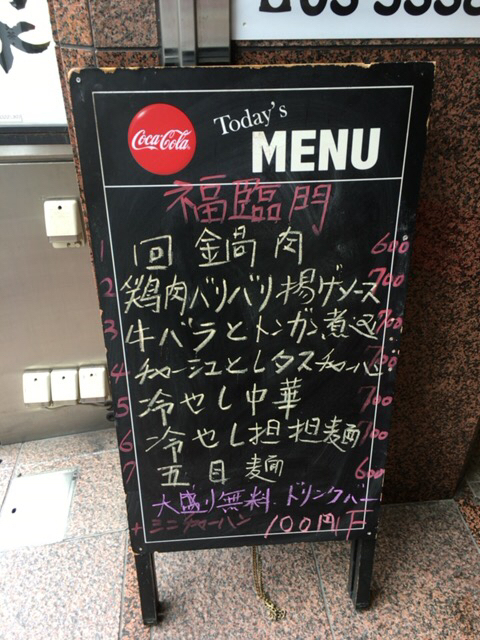 Coca-Cola
Today's
MENU
福臨門
1 回鍋肉 600
2 鶏肉バリバリ揚ゲソース 700
3 牛バラとトンガラ煮込 700
4 チャーシューとレタスチャーハン 700
5 冷やし中華 700
6 冷やし担担麺 700
7 五目麺 600
大盛り無料、ドリンクバー
+ミニチャーハン 100円